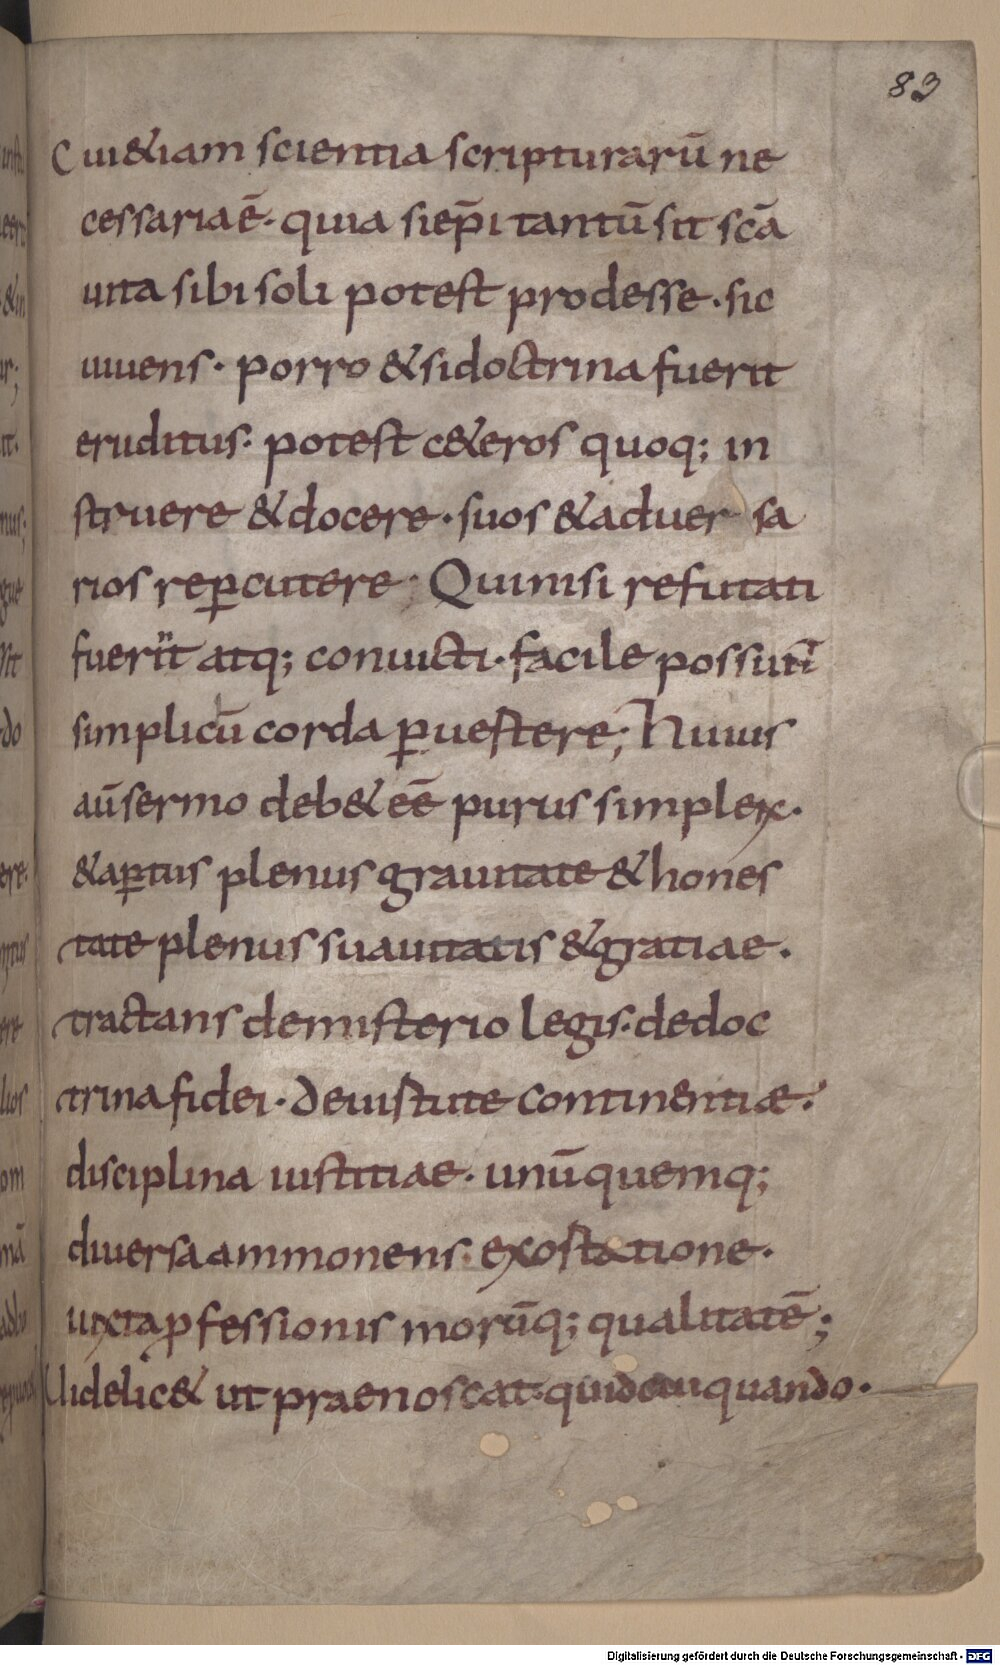 83
Cui&iam scientia scripturarū ne
cessariaē· quia siep̄i tantū sit scā
uita sibi soli potest prodesse· sic
uiuens· porro &sidoctrina fuerit
eruditus· potest c&eros quoq; in
struere &docere· suos &aduer sa
rios rep̱cutere· Quinisi refutati
fuerīt atq; conuicti· facile possunt
simplicū corda p̱uestere; Huius
aūsermo deb& eē purus simplex·
&ap̱tus plenus grauitate &hones
tate plenus suauitatis &gratiae·
tractans demisterio legis· dedoc
trina fidei· Deuistute continentiæ·
disciplina iustitiae· unūquemq;
diuersa ammonens· exostatione·
iuxta ꝓfessionis morūq; qualitatē;
Uidelic& ut praenoscat quid cui quando·
Digitalisierung gefördert durch die Deutsche Forschungsgemeinschaft - DFG